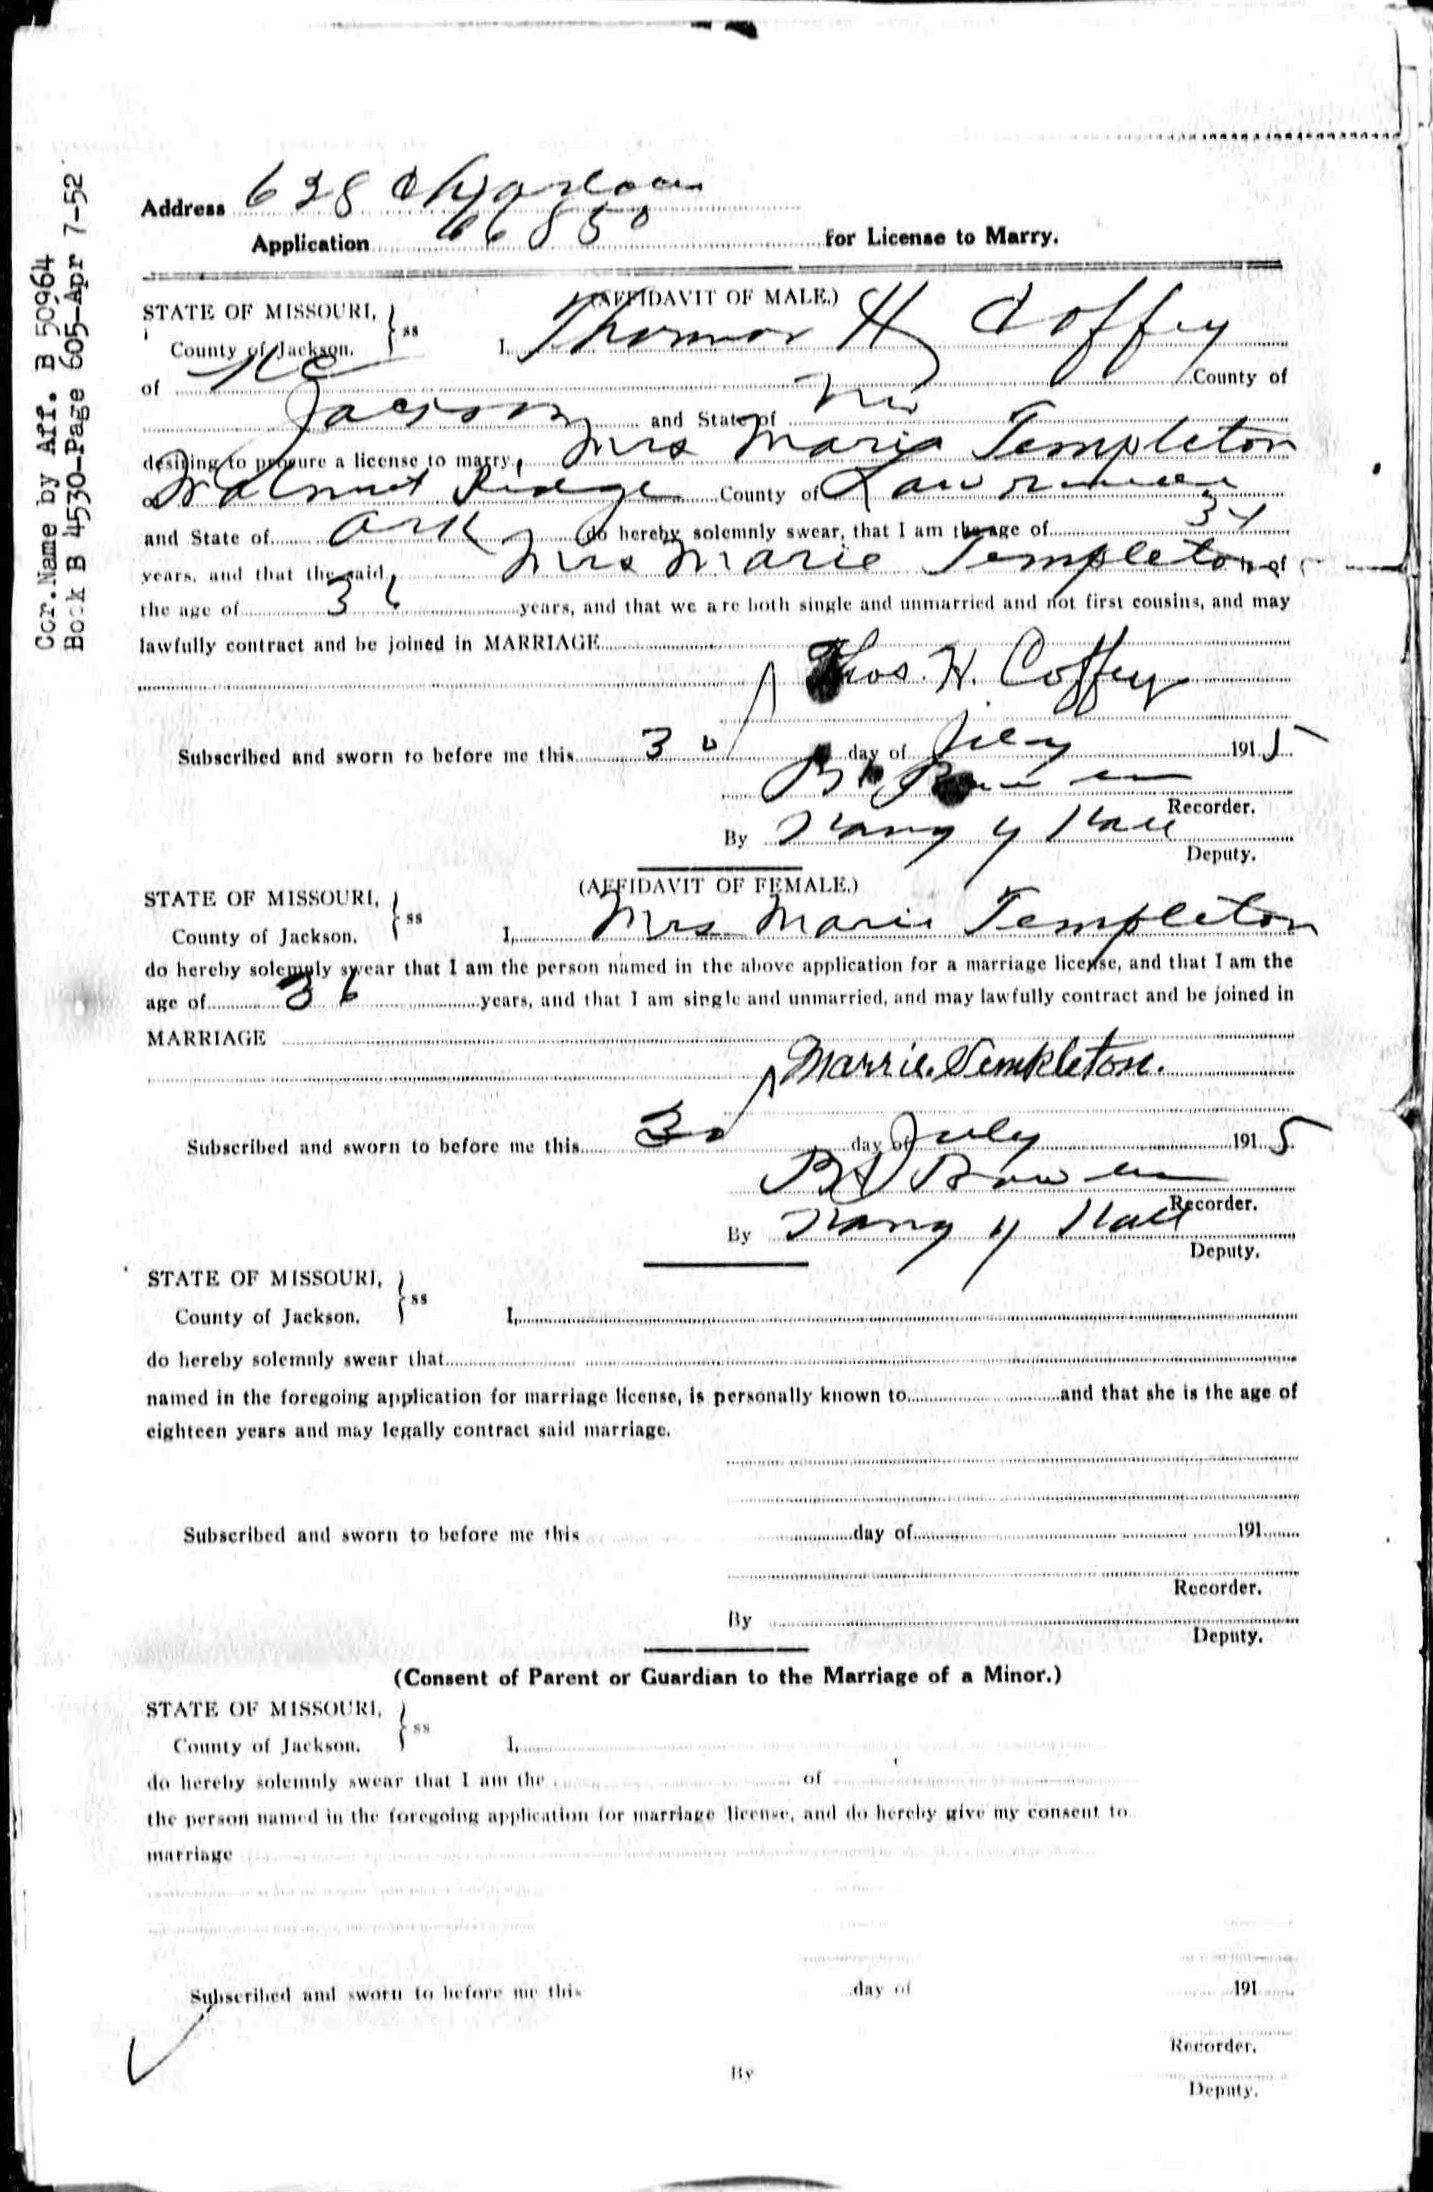 Cor.Name by Aff. B 50964
Book B 4530-Page 605-Apr 7-52
Address 628
Application 66850 for License to Marry.
(AFFIDAVIT OF MALE.)
STATE OF MISSOURI, } ss
County of Jackson. I, Thomas H Coffey
of K C County of
Jackson and State of Mo
desiring to procure a license to marry, Mrs Maria Templeton
of Walnut Ridge County of Lawrence
and State of Ark do hereby solemnly swear, that I am the age of
years, and that the said Mrs Marie Templeton
the age of 36 years, and that we are both single and unmarried and not first cousins, and may
lawfully contract and be joined in MARRIAGE
Thos. H. Coffey
Subscribed and sworn to before me this 30 day of July 1915
Recorder.
By Hall
Deputy.
(AFFIDAVIT OF FEMALE.)
STATE OF MISSOURI, } ss
County of Jackson. I, Mrs Marie Templeton
do hereby solemnly swear that I am the person named in the above application for a marriage license, and that I am the
age of 36 years, and that I am single and unmarried, and may lawfully contract and be joined in
MARRIAGE
Marrie. Templeton.
Subscribed and sworn to before me this 30 day of July 1915
Recorder.
By Hall
Deputy.
STATE OF MISSOURI, } ss
County of Jackson. I,
do hereby solemnly swear that
named in the foregoing application for marriage license, is personally known to and that she is the age of
eighteen years and may legally contract said marriage.
Subscribed and sworn to before me this day of 191
Recorder.
By
Deputy.
(Consent of Parent or Guardian to the Marriage of a Minor.)
STATE OF MISSOURI, } ss
County of Jackson. I,
do hereby solemnly swear that I am the of
the person named in the foregoing application for marriage license, and do hereby give my consent to
marriage
Subscribed and sworn to before me this day of 191
Recorder.
By
Deputy.